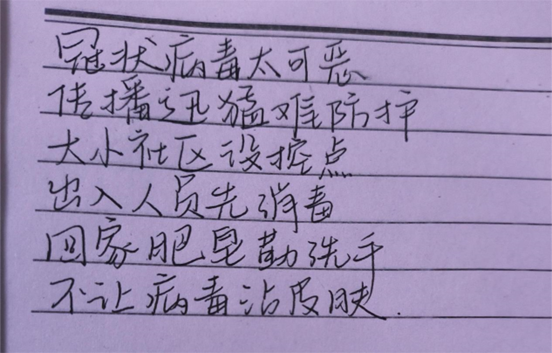 冠状病毒太可恶
传播迅猛难防护
大小社区设控点
出入人员先消毒
回家肥皂勤洗手
不让病毒沾皮肤.